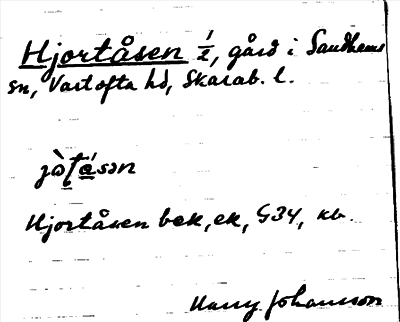 Hjortåsen 1/2, gård i Sandhems
sn, Vartofta hd, Skarab. l.
Hjortåsen bek, ek, G34, kb.
Harry Johansson